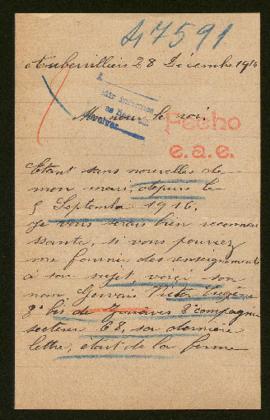 47591
Aubervilliers 28 Décembre 191
Monsieur le roi,
Fecho
e.a.e.
Etant sans nouvelles de
mon mari depuis le
5 Septembre 1916,
je vous serais bien reconnais
sante, si vous pouviez
me fournir des renseignements
à son sujet, voici son
nom Gervais Victor Eugène
9e bis de Zouaves 8e compagnie
secteur 68, sa dernière
lettre, etant de la ferme